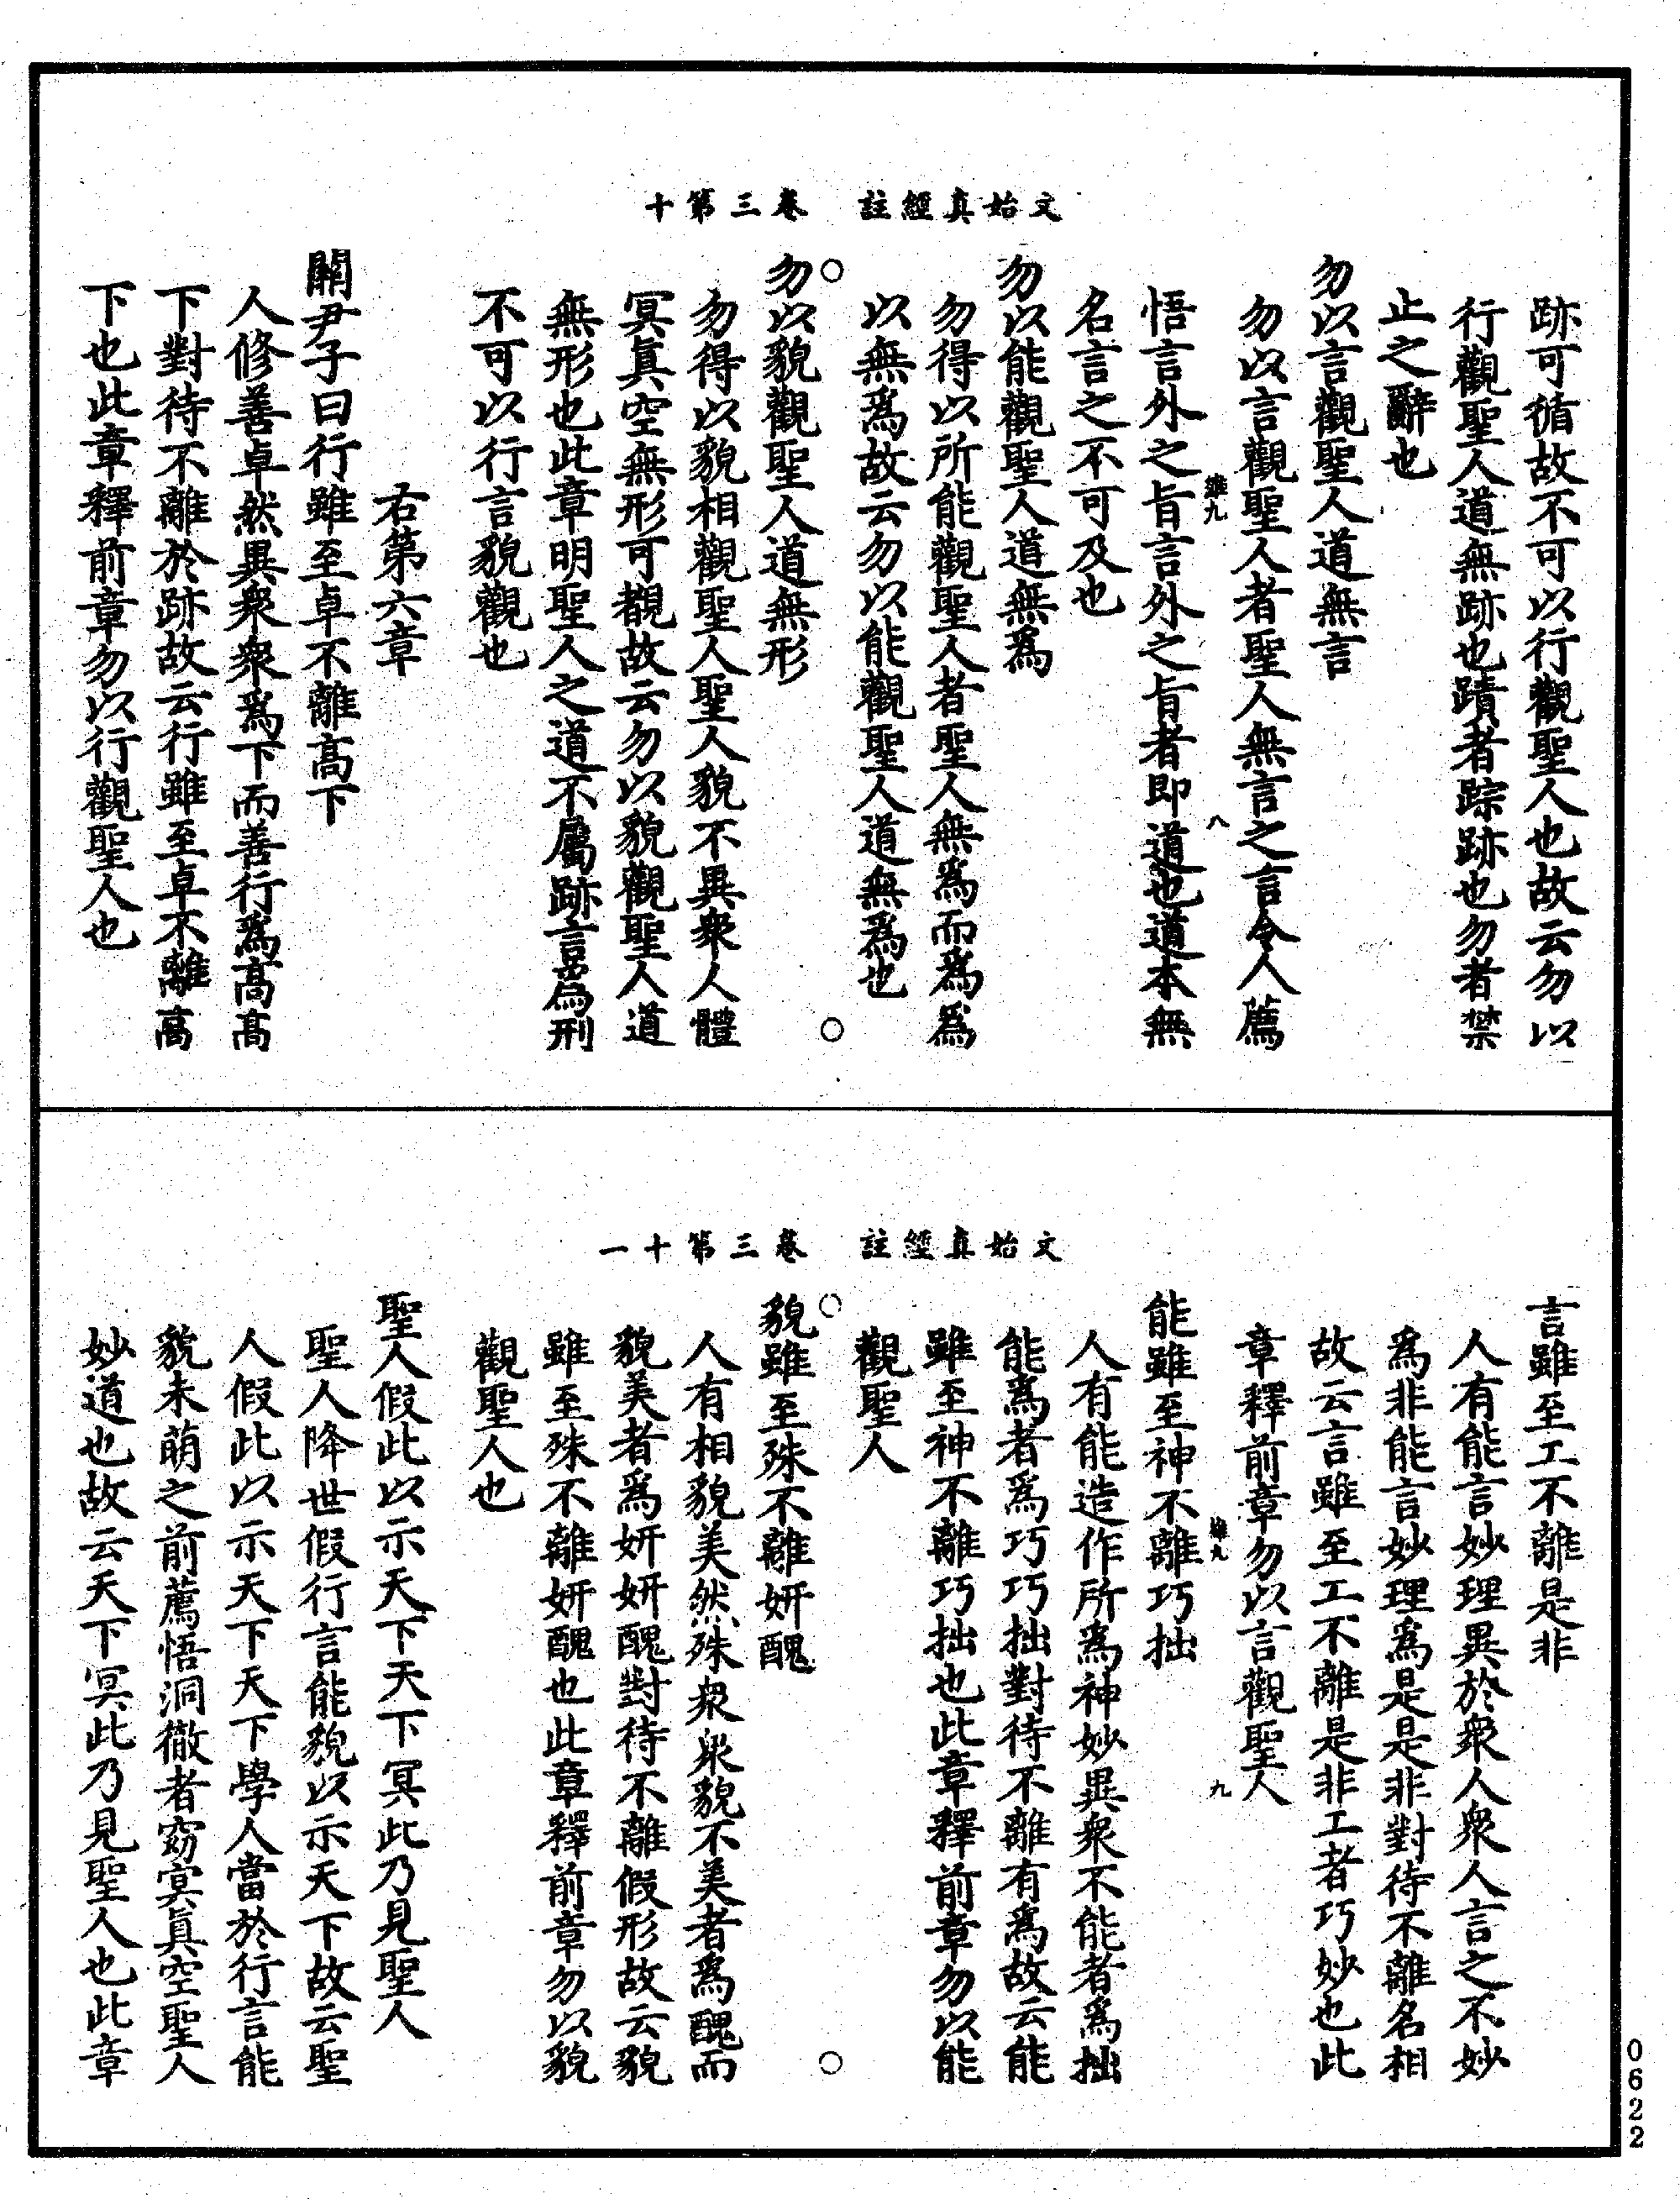 文始真經註　卷三第十
跡可循故不可以行觀聖人也故云勿以
行觀聖人道無跡也蹟者踪跡也勿者禁
止之辭也
勿以言觀聖人道無言
勿以言觀聖人者聖人無言之言令人薦
悟言外之旨言外之旨者即道也道本無
名言之不可及也
勿以能觀聖人道無爲
勿得以所能觀聖人者聖人無爲而爲爲
以無爲故云勿以能觀聖人道無爲也
勿以貌觀聖人道無形
勿得以貌相觀聖人聖人貌不異衆人體
冥真空無形可覩故云勿以貌觀聖人道
無形也此章明聖人之道不屬跡言爲刑
不可以行言貌觀也
右第六章
關尹子曰行雖至卓不離高下
人修善卓然異衆衆爲下而善行爲高高
下對待不離於跡故云行雖至卓不離高
下也此章釋前章勿以行觀聖人也
維九
八
文始真經註　卷三第十一
言雖至工不離是非
人有能言妙理異於衆人衆人言之不妙
爲非能言妙理爲是是非對待不離名相
故云言雖至工不離是非工者巧妙也此
章釋前章勿以言觀聖人
能雖至神不離巧拙
人有能造作所爲神妙異衆不能者爲拙
能爲者爲巧巧拙對待不離有爲故云能
雖至神不離巧拙也此章釋前章勿以能
觀聖人
貌雖至殊不離妍醜
人有相貌美然殊衆衆貌不美者爲醜而
貌美者爲妍妍醜對待不離假形故云貌
雖至殊不離妍醜也此章釋前章勿以貌
觀聖人也
聖人假此以示天下天下冥此乃見聖人
聖人降世假行言能貌以示天下故云聖
人假此以示天下天下學人當於行言能
貌未萌之前薦悟洞徹者窈冥真空聖人
妙道也故云天下冥此乃見聖人也此章
維九
九
0622